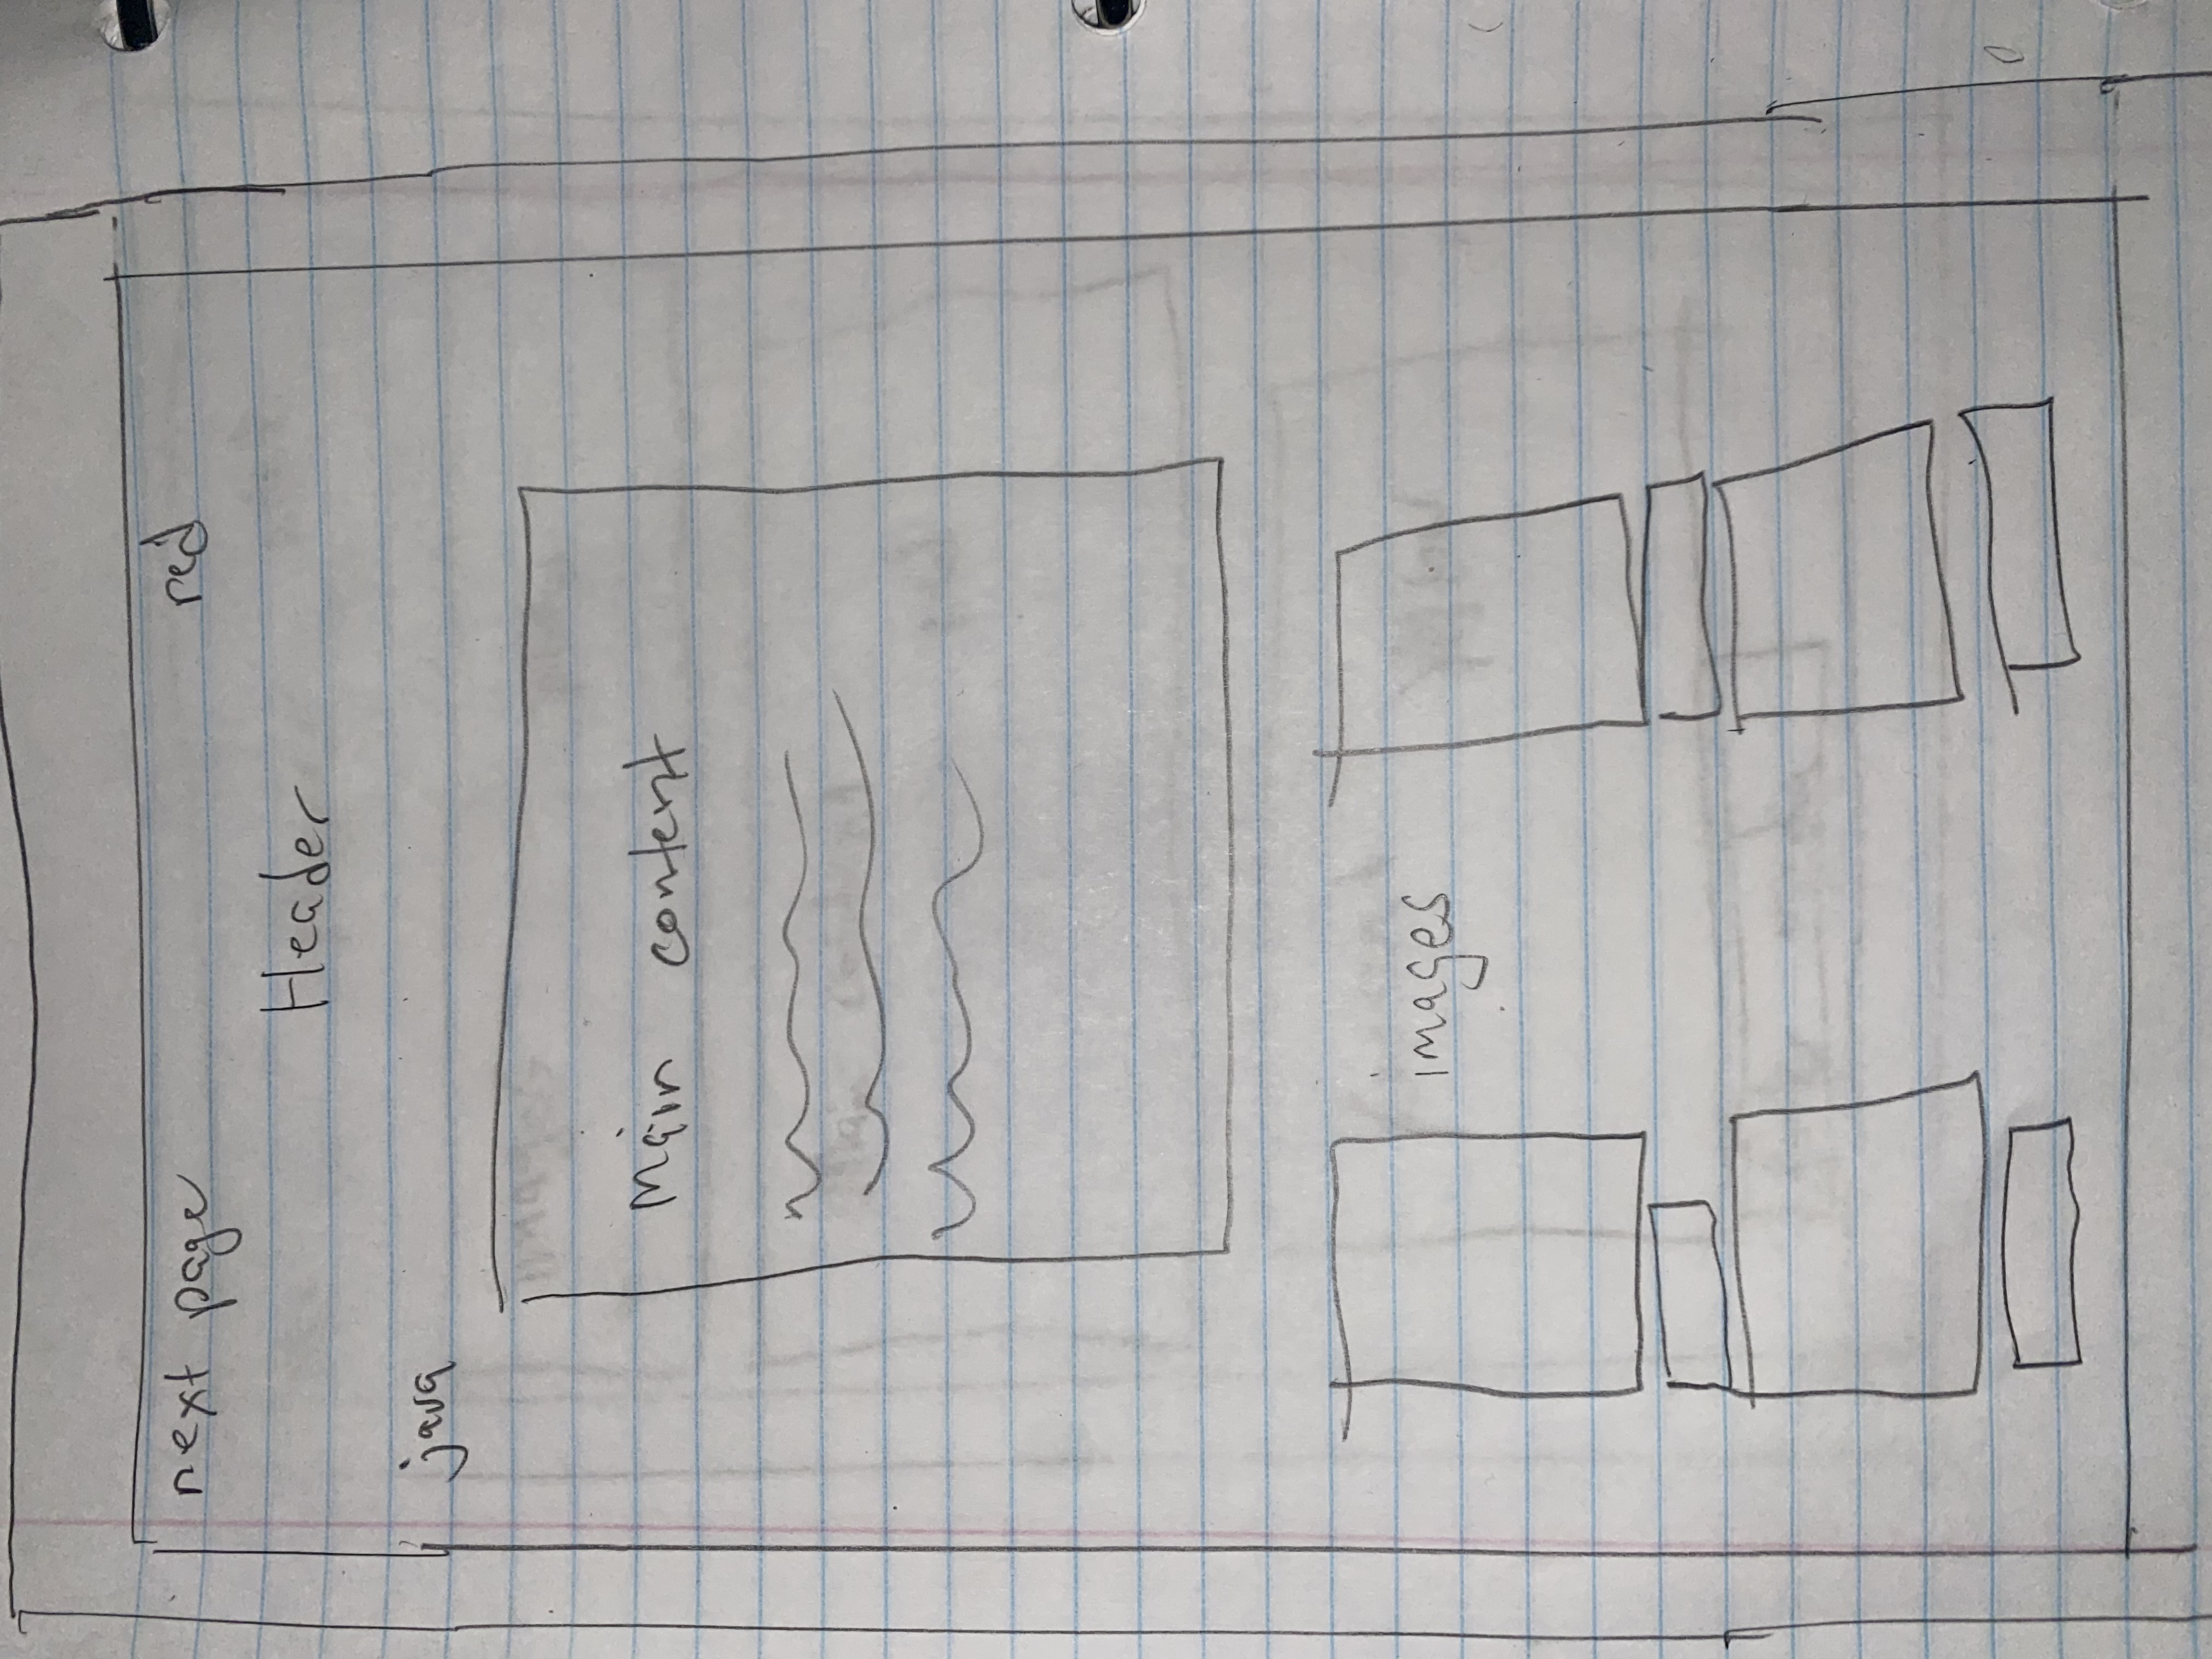 next page red
Header
java
Main content
images